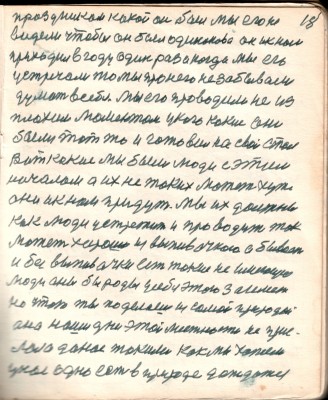 18
праздником какой он был мы его не
видели чтобы он был одинаков а он к нам
приходил в году один раз когда мы его
встречаем то мы про него не забываем
думают всегда. Мы его проводили не из
плохим моментом у кого какие они
были тот то и готовил на свой стол
Вот какие мы были люди с этим
началом а их не таких может хуже
они к нам придут. Мы их должны
как люди встретить и проводить так
может хорошо из выпивачкою а бывает
и без выпивачки есть такие не имеющие
люди
но что ты поделаешь из самой природы
она нашли дни этой местности не прис-
лала данае такими как мы хотели
у нас одно есть в природе дождатся